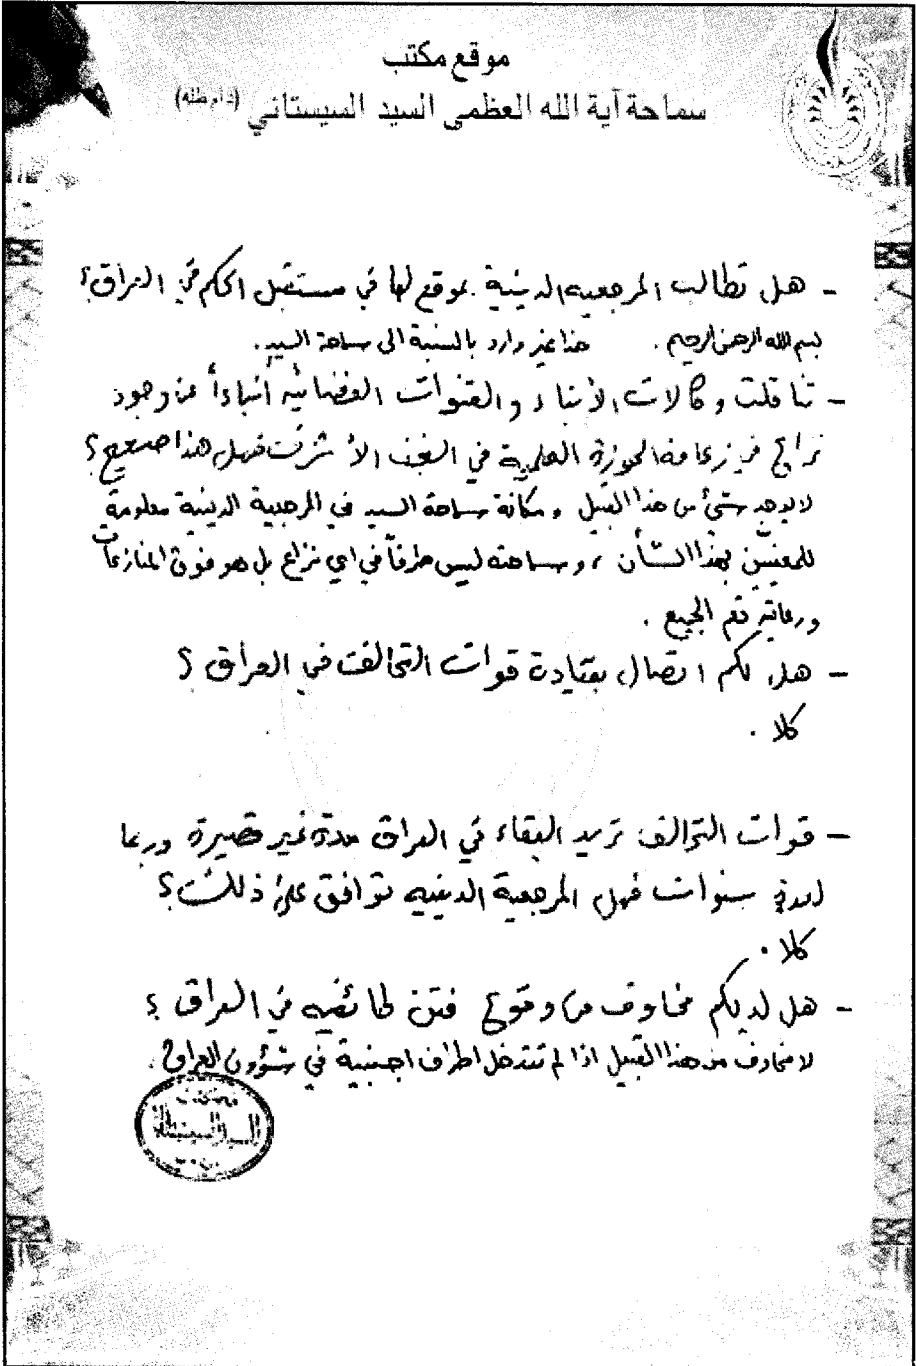 موقع مكتب
سماحة آية الله العظمى السيد السيستاني (دام ظله)
- هل تطالب المرجعيه الدينية بموقع لها في مستقبل الحكم في العراق؟
بسم الله الرحمن الرحيم . هذا غير وارد بالنسبة الى سماحة السيد .
- تناقلت وكالات الأنباء والقنوات الفضائيه أنباءاً عن وجود
نزاع في زعامة الحوزة العلمية في النجف الأشرف فهل هذا صحيح؟
لا يوجد شيء من هذا القبيل ومكانة سماحة السيد في المرجعية الدينية معلومة
للمعنيين بهذا الشأن ، وسماحته ليس طرفاً في اي نزاع بل هو فوق المنازعات
ورعايته تعم الجميع .
- هل لكم اتصال بقيادة قوات التحالف في العراق ؟
كلا .
- قوات التحالف تريد البقاء في العراق مدة غير قصيرة وربما
لعدة سنوات فهل المرجعية الدينيه توافق على ذلك؟
كلا .
- هل لديكم مخاوف من وقوع فتن طائفيه في العراق ؟
لا مخاوف من هذا القبيل اذا لم تتدخل اطراف اجنبية في شؤون العراق .
مكتب
السيد السيستاني